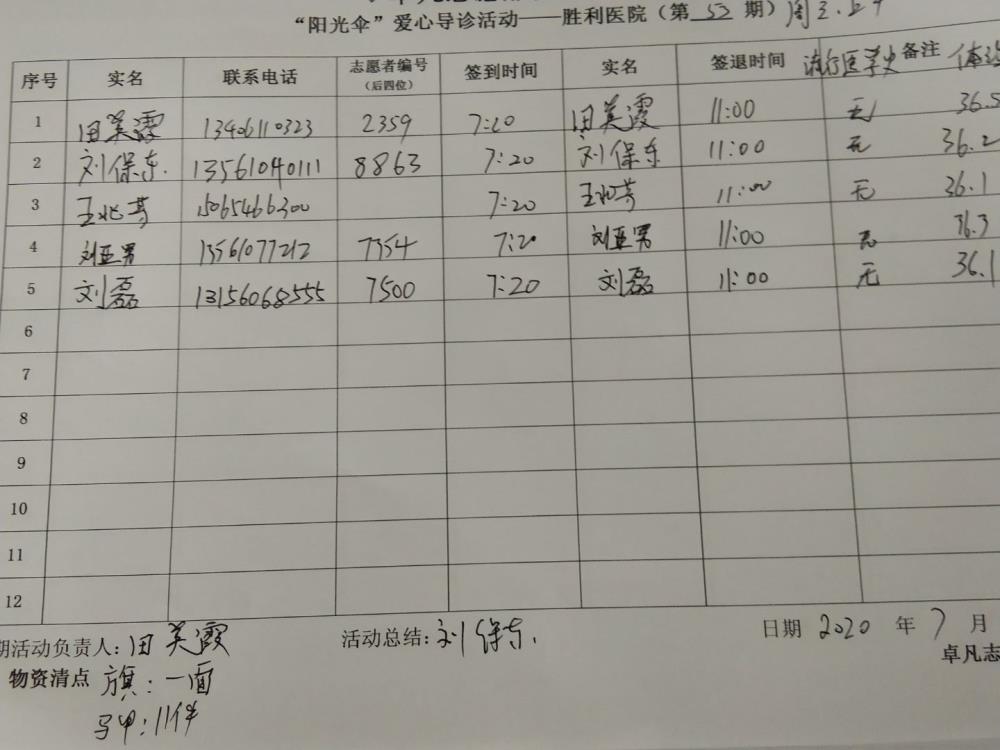 “阳光伞”爱心导诊活动——胜利医院（第 53 期）周三.上午
序号 实名 联系电话 志愿者编号（后四位） 签到时间 实名 签退时间 流行医学史 备注 体温
1 田美霞 13406110323 2359 7:20 田美霞 11:00 无 36.5
2 刘保东. 13561040111 8863 7:20 刘保东 11:00 无 36.2
3 王兆芬 15065466300 7:20 王兆芬 11:00 无 36.1
4 刘亚男 13561077212 7354 7:20 刘亚男 11:00 无 36.3
5 刘磊 13156068555 7500 7:20 刘磊 11:00 无 36.1
6
7
8
9
10
11
12
期活动负责人: 田美霞 活动总结: 刘保东. 日期 2020 年 7 月
物资清点 旗: 一面 卓凡志
马甲: 11件